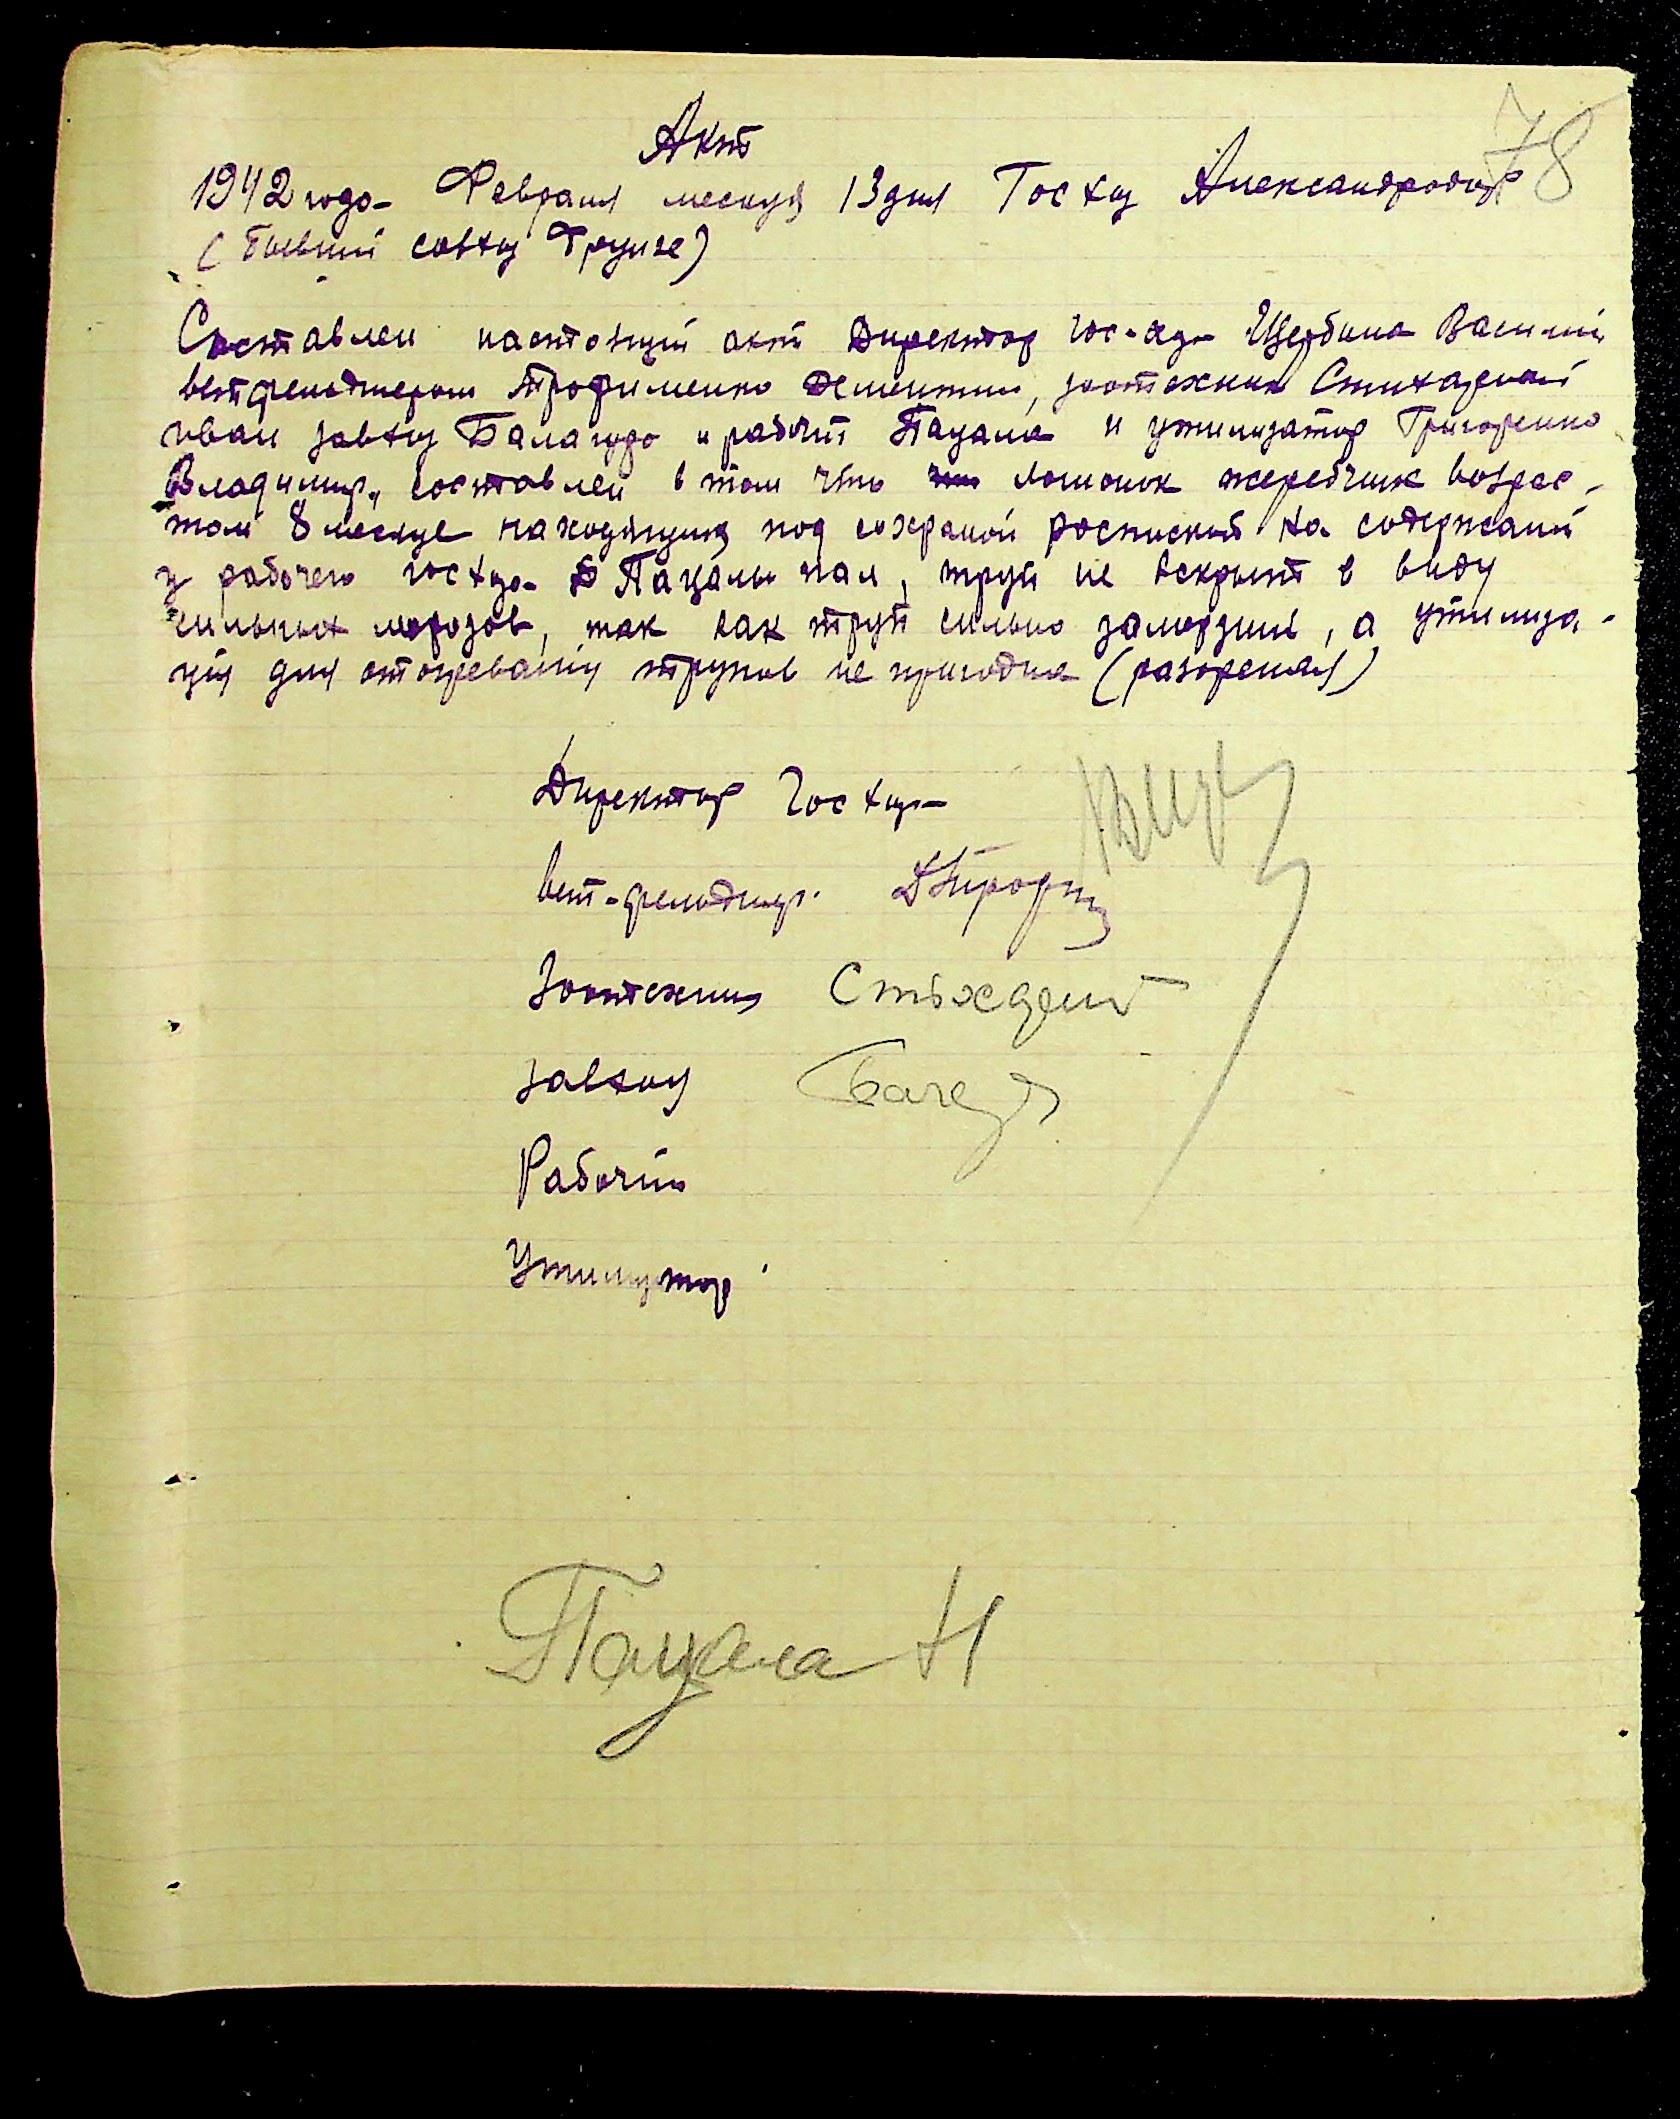 78
Акт
1942 года Февраля месяця 13 дня Госхоз Александродар
(бывший совхоз Фрунзе)
Составлен настоящий акт Директор госхоза Щербина Василий
ветфельдшером Трофименко Дементий, зоотехник
иван завхоз Балагура и рабочий Пацала и утилизатор Григоренко
Владимир, составлен в том что лошонок жеребчик возрас-
том 8 месяце находящийся под сохраной роспиской на содержаний
у рабочего госхоза Пацалы пал, труп не вскрыт в виду
сильных морозов, так как труп сильно замерзший, а утилиза-
ция для отогревания трупов не пригодна (разореная)
Директор Госхоза
вет-фельдшер ДТроф
Зоотехник
завхоз
Рабочий
Утилизатор
Пацала Н